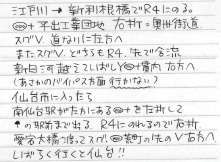 江戸川 → 新利根橋でR4にのる。
平出工業団地 右折 = 奥州街道
スグV 道ないに左方へ
またスグV. どちらもR4. 左で合流
新白河越えてしばし Y 管内 右方へ
(あさかのバイパス方面 行かない)
仙台市に入ったら
南仙台駅が左にある を左折して
の駅前まで出る R4にのれるので右折
愛宕大橋渡ってスグ 荒町の先のV右方へ
しばらく行くと仙台!!